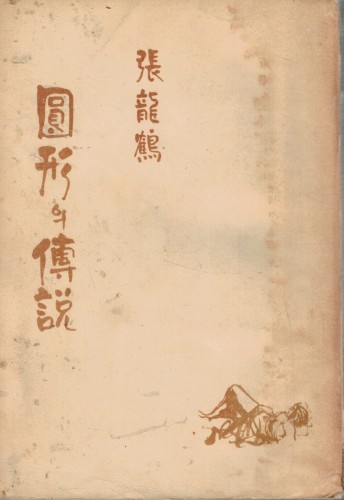 張龍鶴
圓形의傳說